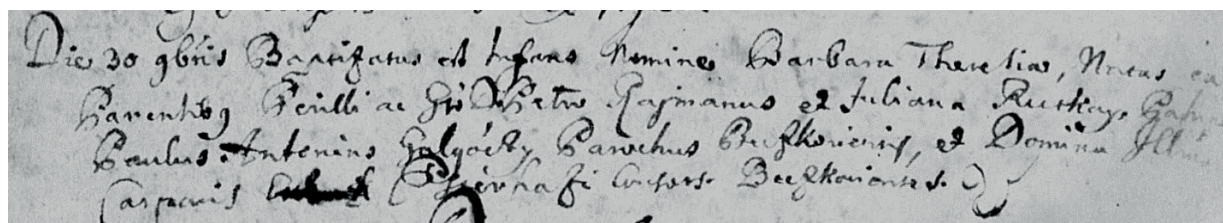 Die 30 9bris Baptizatus est Infans Nomine Barbara Theresia, Natus ex
Parentibg Petro Gasmanus et Juliana Ruttkay.
Paulus Antonius Galgóczy Parochus Beczkoviensis, et Domina Illmi
Casparis Consors Beczkoviensis.